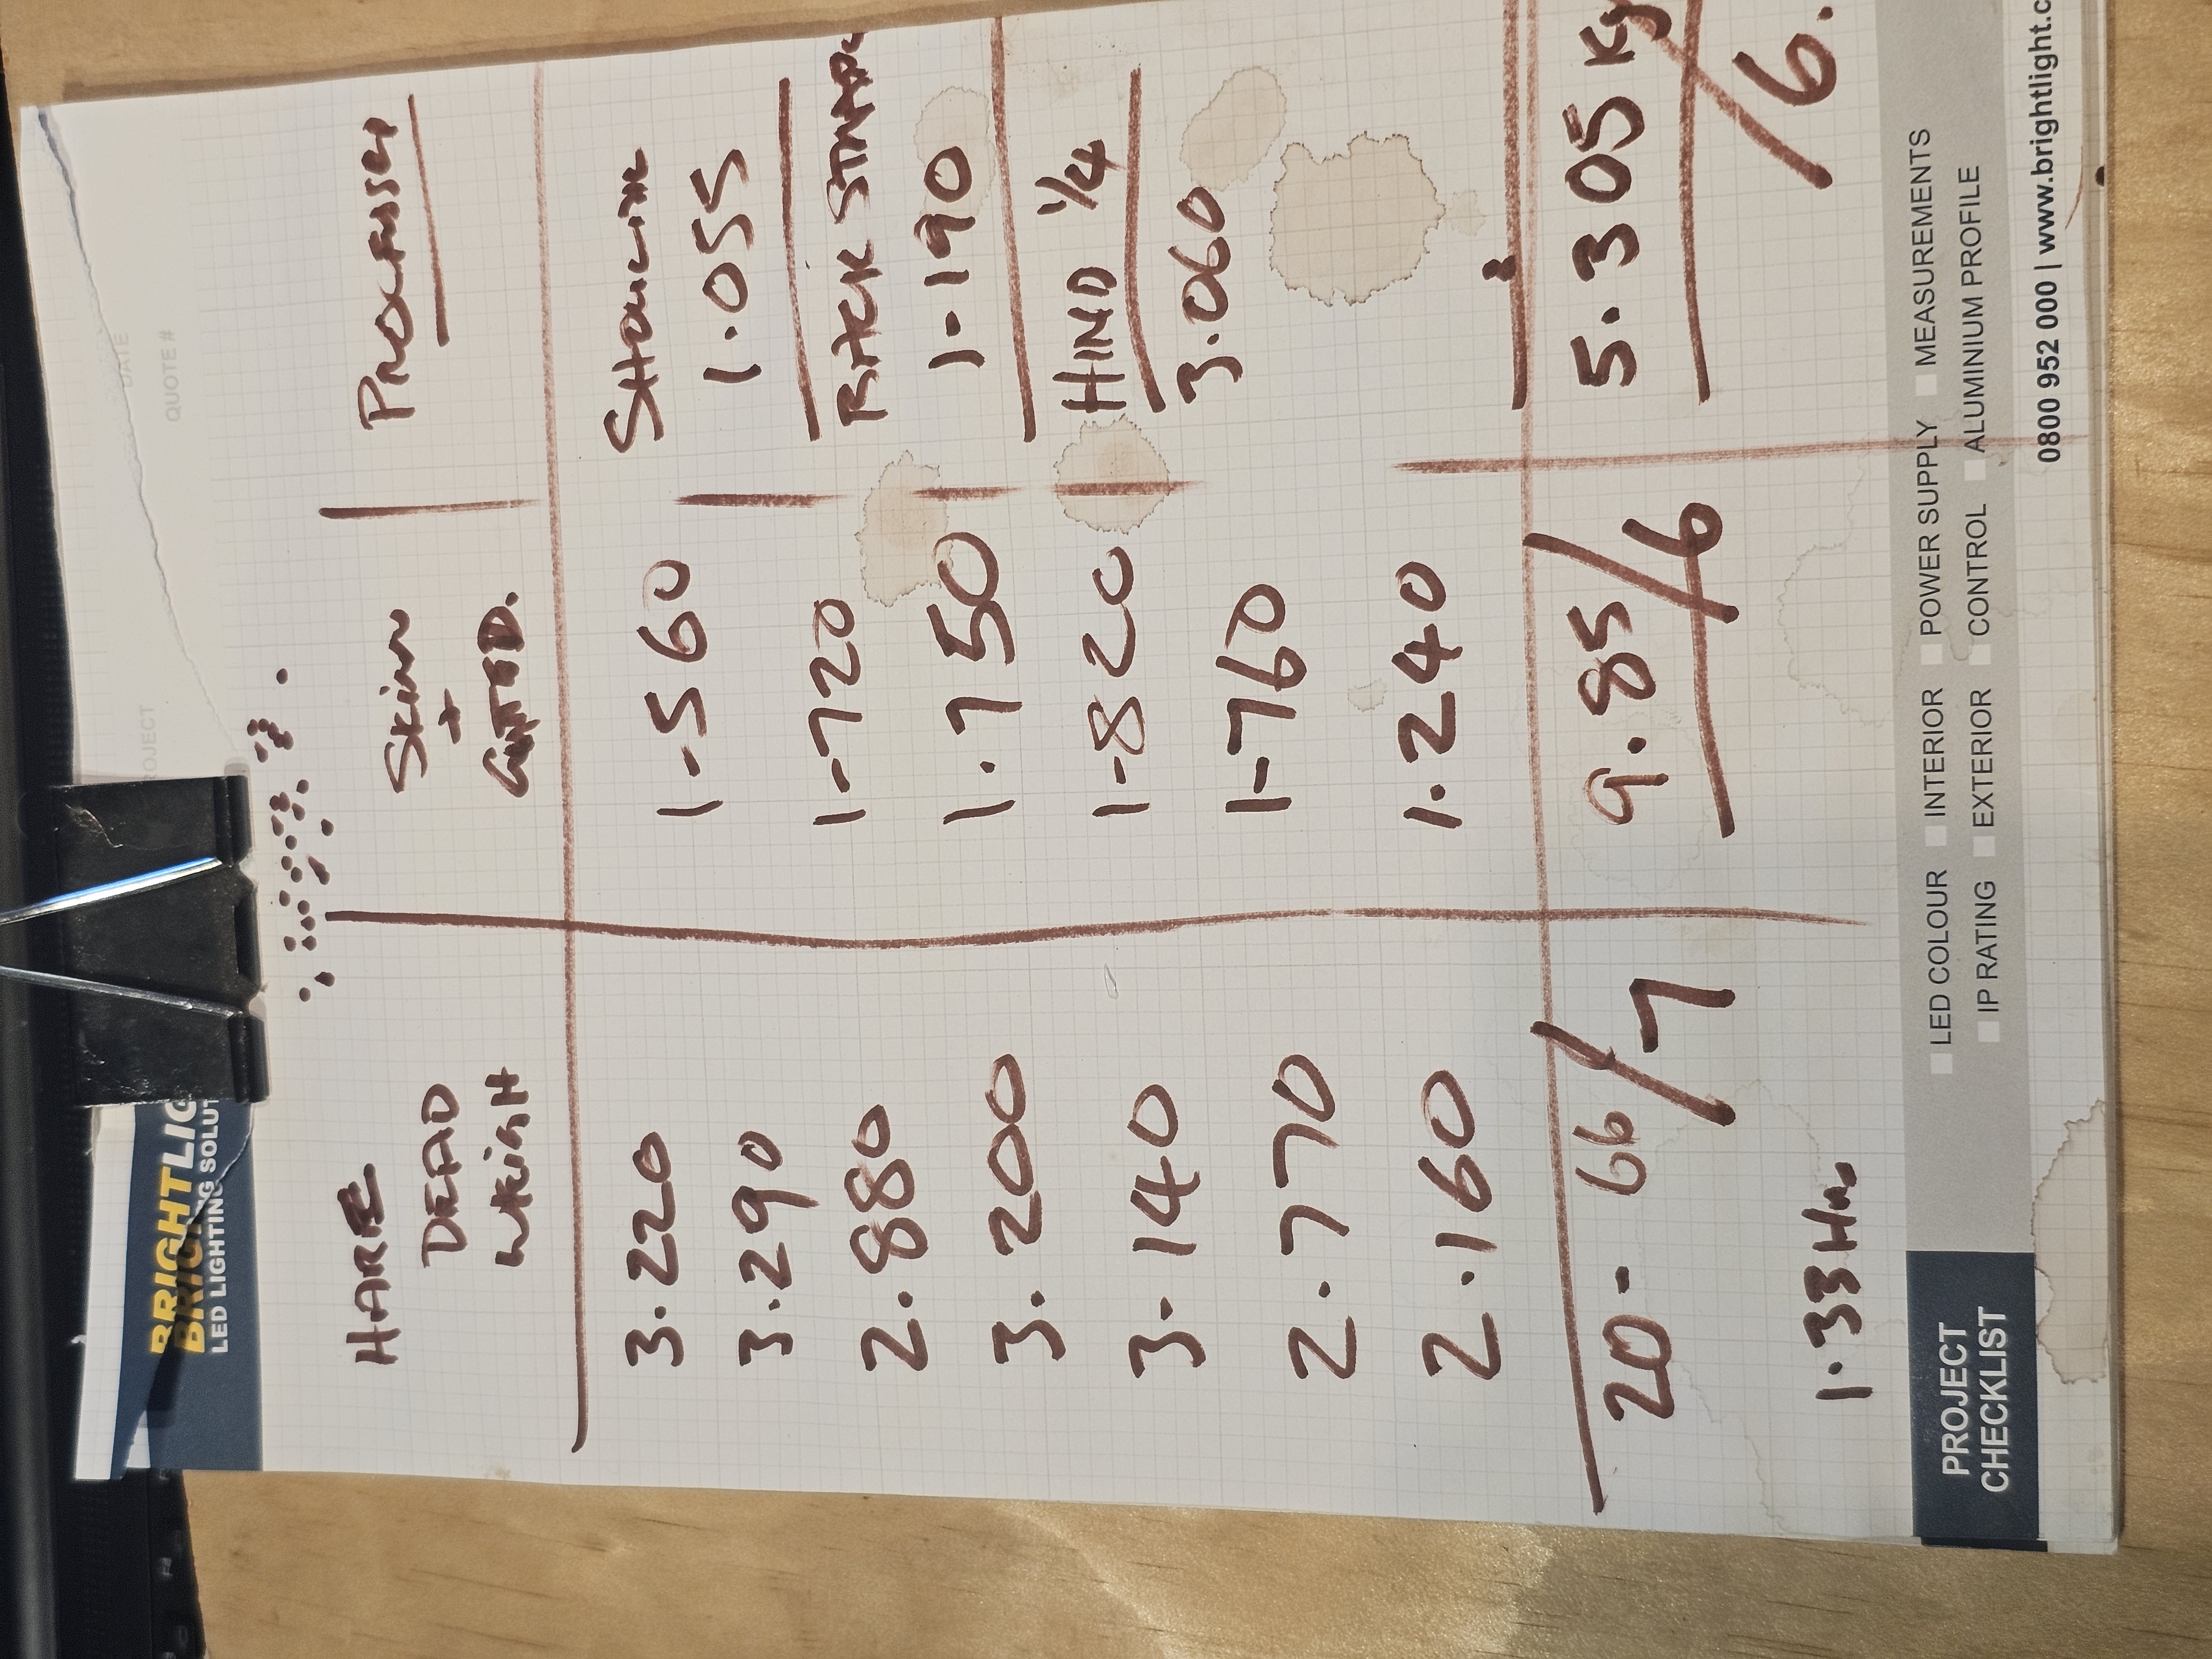 BRIGHTLIG
BRIGHTLIG
LED LIGHTING SOLUT
PROJECT
DATE
QUOTE #
HARE
DEAD
WEIGH
3.220
3.290
2.880
3.200
3.140
2.770
2.160
20.66/7
1.33 Hrs
Skin
+
GUTTED.
1-560
1-720
1.750
1-820
1-760
1.240
9.85/6
PROCESSED
SHOULDER
1.055
BACK STRAPS
1-190
HIND 1/4
3.060
5.305 Kg
/6.
PROJECT
CHECKLIST
LED COLOUR INTERIOR POWER SUPPLY MEASUREMENTS
IP RATING EXTERIOR CONTROL ALUMINIUM PROFILE
0800 952 000 | www.brightlight.c